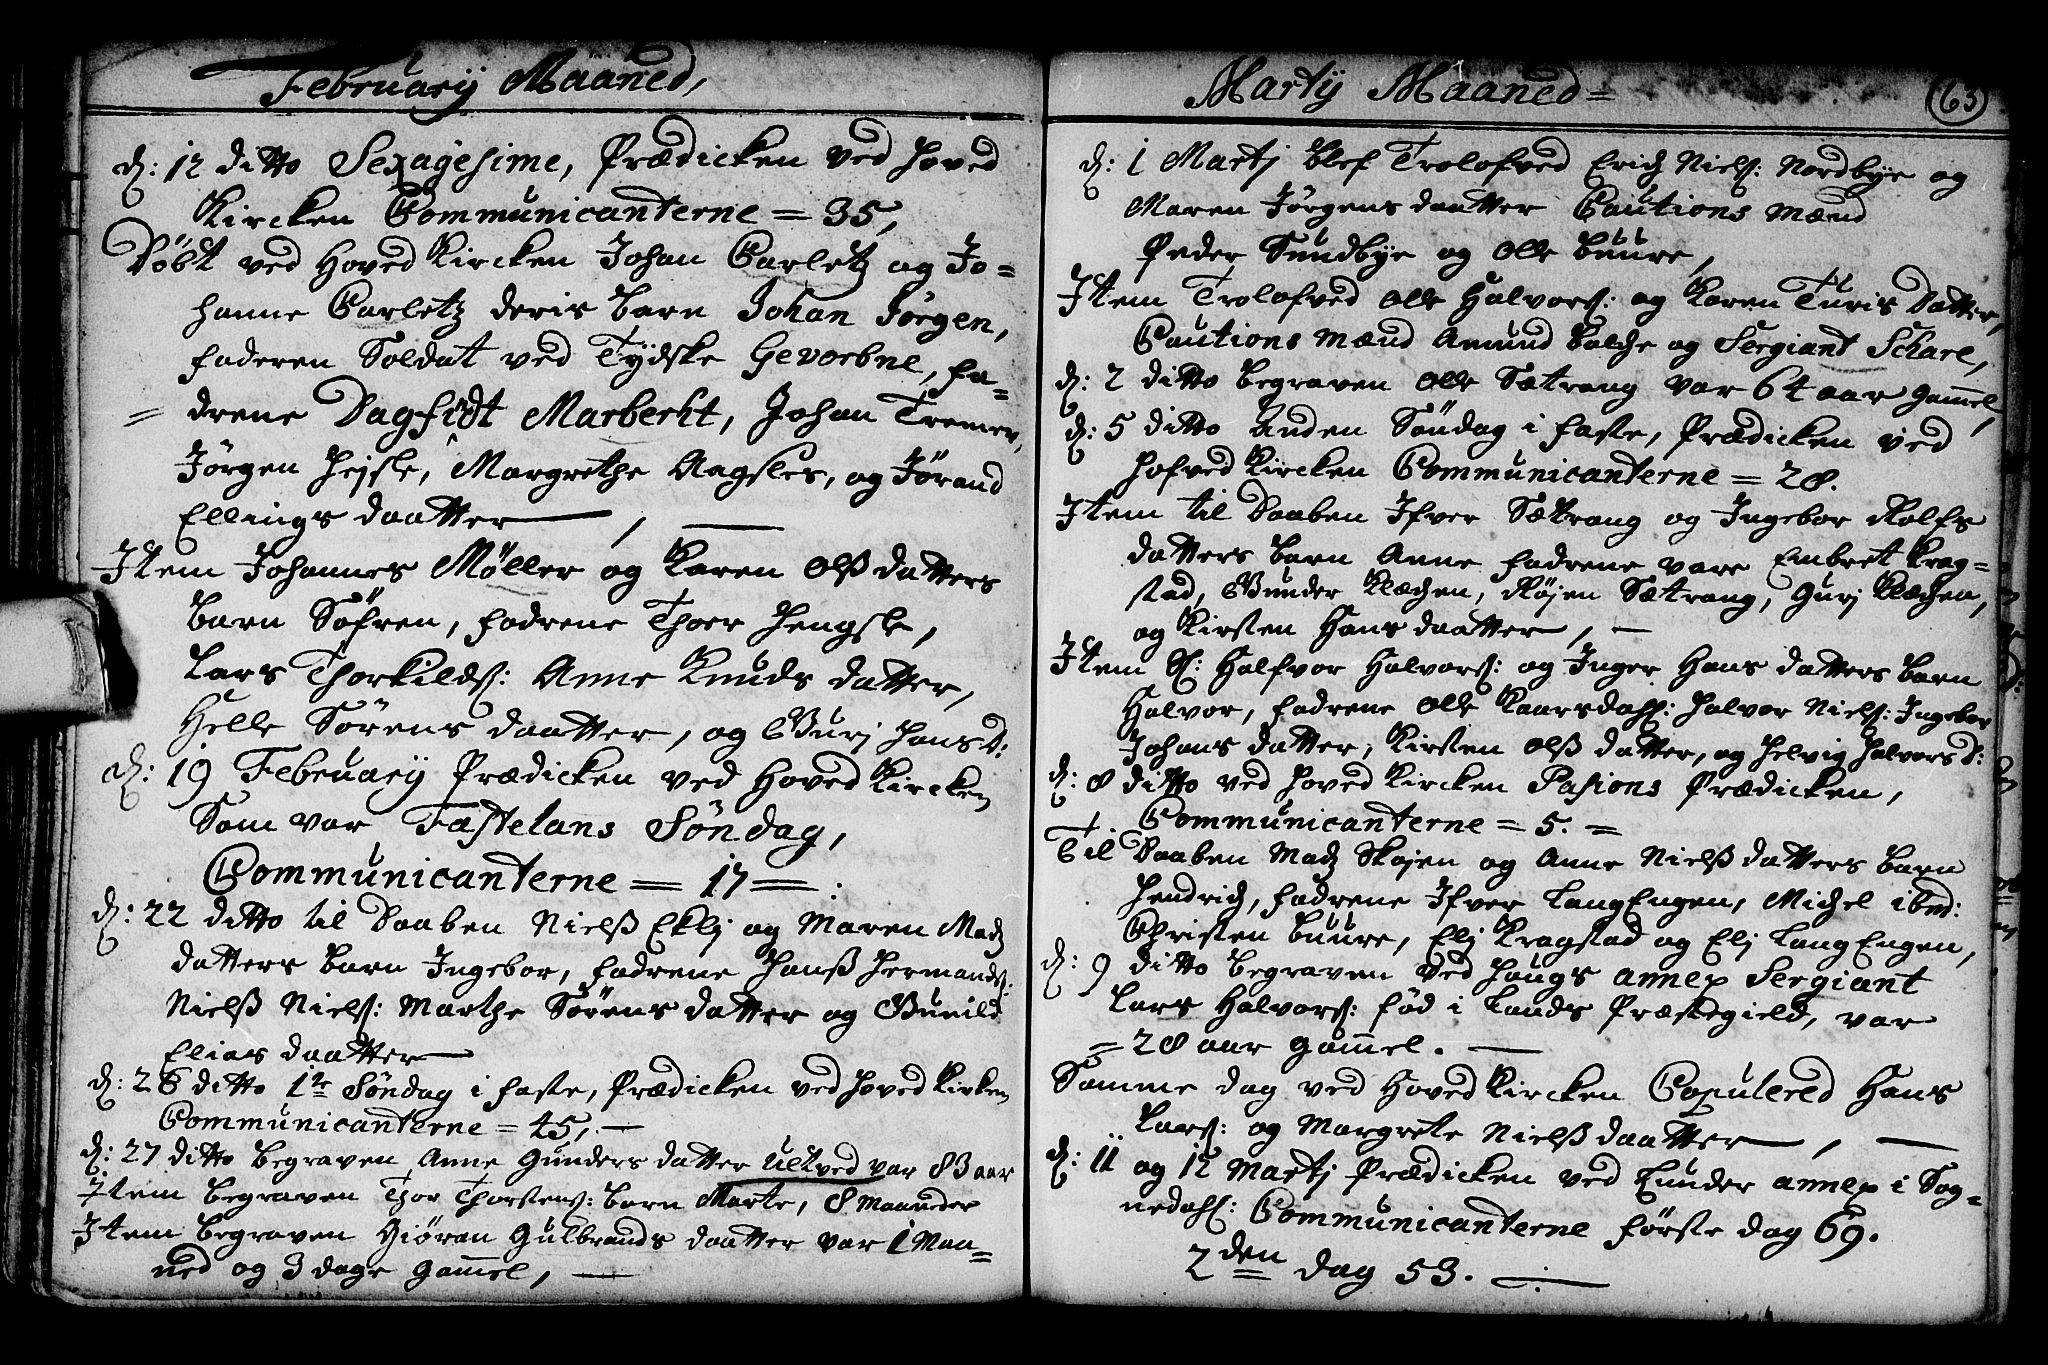 Februarij Maaned,
d: 12 ditto Sexagesime, Prædicken ved Hoved
Kircken Communicanterne = 35,
Döbt ved Hoved Kircken Johan Carletz og Jo=
hanne Carletz deris barn Johan Jörgen,
faderen Soldat ved Tydske Gevorbne, fa=
= drene Dagfidt Marbecht, Johan Tremer,
Jörgen Hejsle, Margrethe Aagsles, og Jörand
Ellings daatter — , —
Jtem Johannes Møller og Karen Olß datters
barn Söfren, fadrene Thoer Hengsle,
Lars Thorkilds: Anne Knuds datter,
Helle Sörens daatter, og Gurj Hans D:
d: 19 Februarij Prædicken ved Hoved Kircken
Som var Fastelans Söndag,
Communicanterne = 17 = :
d: 22 ditto til Daaben Nielß Eklj og Maren Madz
datters barn Jngebor, fadrene Hanß Hermands:
Nielß Niels: Marthe Sörens datter og Gunild
Elias daatter —
d: 26 ditto 1te Söndag i faste, Prædicken ved Hoved Kirken
Communicanterne = 45, —
d: 27 ditto begraven Anne Gunders datter Ultved var 83 aar
Jtem begraven Thor Thorstens: barn Marte, 8 Maaneder
Jtem begraven Giöran Gulbrands daatter var 1 Maa=
ned og 3 dage gam̅el, —
Martij Maaned =
63
d: 1 Martj blef Trolofved Erich Niels: Nordbye og
Maren Jörgens daatter Cautions mænd
Peder Sundbye og Olle Buure,
Jtem Trolofved Olle Halvors: og Karen Turis Datter,
Cautions mænd Amund Balche og Sergiant Scharl,
d: 2 ditto begraven Olle Sætrang var 64 aar gam̅el,
d: 5 ditto Anden Söndag i faste, Prædicken ved
Hofved Kircken Communicanterne = 28.
Jtem til Daaben Jfver Sætrang og Jngebor Rolfs
datters barn Anne fadrene vare Embret Krag=
stad, Gunder Klæchen, Røjen Sætrang, Gurj Klæchen,
og Kirsten Hans daatter, —
Jtem Sl: Halfvor Halvors: og Jnger Hans datters barn
Halvor, fadrene Olle Kaarsdahl: Halvor Niels: Jngebor
Johans datter, Kirsten Olß datter, og Helvig Halvors D:
d: 8 ditto ved Hoved Kircken Pasions Prædicken,
Communicanterne = 5. =
Til Daaben Madz Skojen og Anne Nielß datters barn
Hendrich, fadrene Jfver LangEngen, Michel ibm:
Christen Buure, Elj Kragstad og Elj LangEngen,
d: 9 ditto begraven ved Haugs annex Sergiant
Lars Halvors: föd i Lands Præstegield, var
= 28 aar gam̅el. —
Samme dag ved Hoved Kircken Copulered Hans
Lars: og Margrete Nielß daatter — , —
d: 11 og 12 Martj Prædicken ved Lunder annex i Sog=
nedahl: Communicanterne förste dag 69.
2den dag 53. —